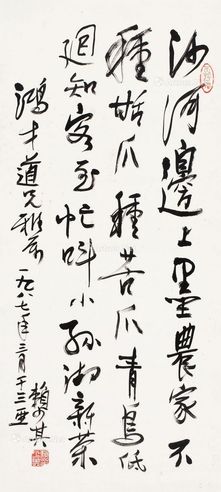 沙河邊上是農家不
種甜瓜種苦瓜青鳥低
迴知客至忙叫小孫沏新茶
鴻才道兄雅屬
一九八七年三月十三亞
賴少其